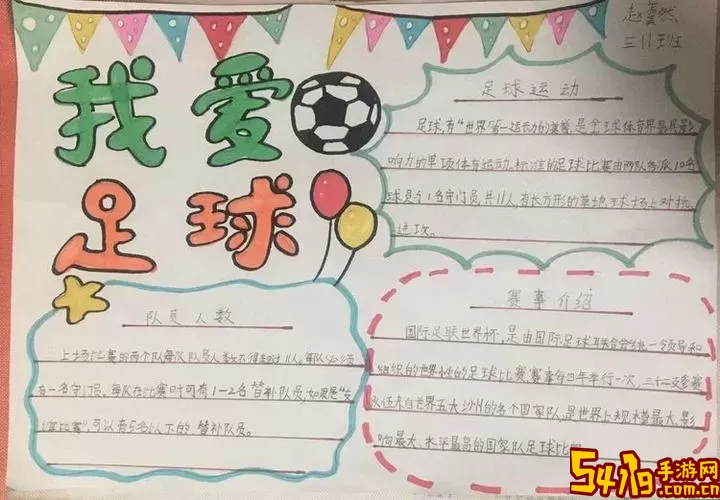 赵蕓然
三11班
我爱
足球
足球运动
足球,有"世界第一运动"的美誉,是全球体育界最具影
响力的单项体育运动,标准的足球比赛由两队各派10名
球员与1名守门员,共11人,有长方形的草地球场上对抗、
进攻。
队员人数
上场比赛的两个队每队队员人数不得超过11人。每队必须
有一名守门员。每队在比赛时可有1-2名替补队员,如果是"友
谊比赛",可以有5名以下的替补队员。
赛事介绍
国际足联世界杯,是由国际足球联合会统一领导和
组织的世界性的足球比赛,赛事每四年举行一次,三十二支参赛
队伍来自世界五大洲的各个国家队,是世界上规模最大、影
响最大、水平最高的国家队足球比
5416手游网
.com.cn